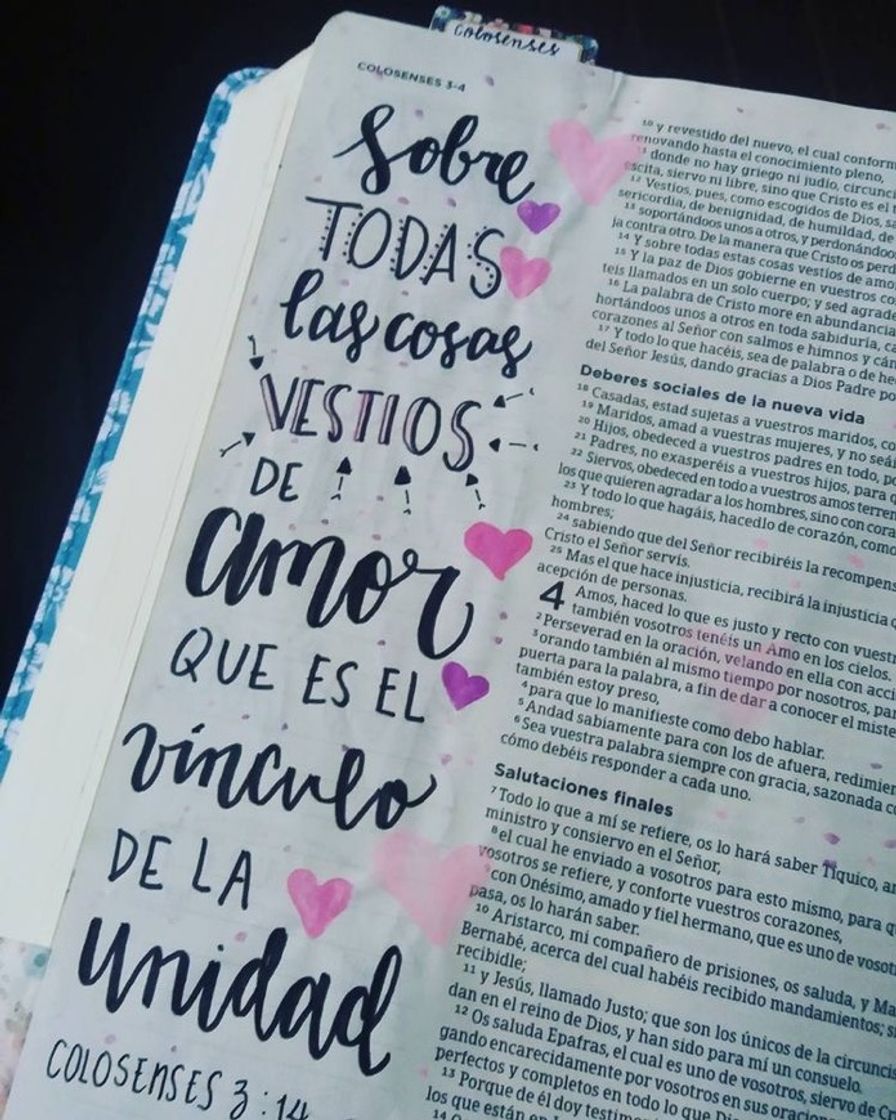 Colosenses
COLOSENSES 3-4
Sobre
TODAS
las cosas
VESTIOS
DE
amor
QUE ES EL
vínculo
DE LA
Unidad
COLOSENSES 3:14
10 y revestido del nuevo, el cual conform
renovando hasta el conocimiento pleno,
11 donde no hay griego ni judío, circunci
escita, siervo ni libre, sino que Cristo es el
12 Vestíos, pues, como escogidos de Dios, sa
sericordia, de benignidad, de humildad, de
13 soportándoos unos a otros, y perdonándoos
ja contra otro. De la manera que Cristo os per
14 Y sobre todas estas cosas vestíos de amo
15 Y la paz de Dios gobierne en vuestros co
teis llamados en un solo cuerpo; y sed agrade
16 La palabra de Cristo more en abundancia
hortándoos unos a otros en toda sabiduría, ca
corazones al Señor con salmos e himnos y cán
17 Y todo lo que hacéis, sea de palabra o de he
del Señor Jesús, dando gracias a Dios Padre po
Deberes sociales de la nueva vida
18 Casadas, estad sujetas a vuestros maridos, co
19 Maridos, amad a vuestras mujeres, y no seái
20 Hijos, obedeced a vuestros padres en todo, po
21 Padres, no exasperéis a vuestros hijos, para q
22 Siervos, obedeced en todo a vuestros amos terren
los que quieren agradar a los hombres, sino con cora
23 Y todo lo que hagáis, hacedlo de corazón, como
hombres;
24 sabiendo que del Señor recibiréis la recompens
Cristo el Señor servís.
25 Mas el que hace injusticia, recibirá la injusticia q
acepción de personas.
4 Amos, haced lo que es justo y recto con vuestr
también vosotros tenéis un Amo en los cielos.
2 Perseverad en la oración, velando en ella con acci
3 orando también al mismo tiempo por nosotros, par
puerta para la palabra, a fin de dar a conocer el miste
también estoy preso,
4 para que lo manifieste como debo hablar.
5 Andad sabiamente para con los de afuera, redimien
6 Sea vuestra palabra siempre con gracia, sazonada c
cómo debéis responder a cada uno.
Salutaciones finales
7 Todo lo que a mí se refiere, os lo hará saber Tíquico, am
ministro y consiervo en el Señor,
8 el cual he enviado a vosotros para esto mismo, para qu
vosotros se refiere, y conforte vuestros corazones,
9 con Onésimo, amado y fiel hermano, que es uno de vosot
pasa, os lo harán saber.
10 Aristarco, mi compañero de prisiones, os saluda, y Ma
Bernabé, acerca del cual habéis recibido mandamientos; si
recibidle;
11 y Jesús, llamado Justo; que son los únicos de la circuncis
dan en el reino de Dios, y han sido para mí un consuelo.
12 Os saluda Epafras, el cual es uno de vosotros, siervo de C
gando encarecidamente por vosotros en sus oracion
perfectos y completos en todo lo que Dio
13 Porque de él doy testimo
los que están en
14